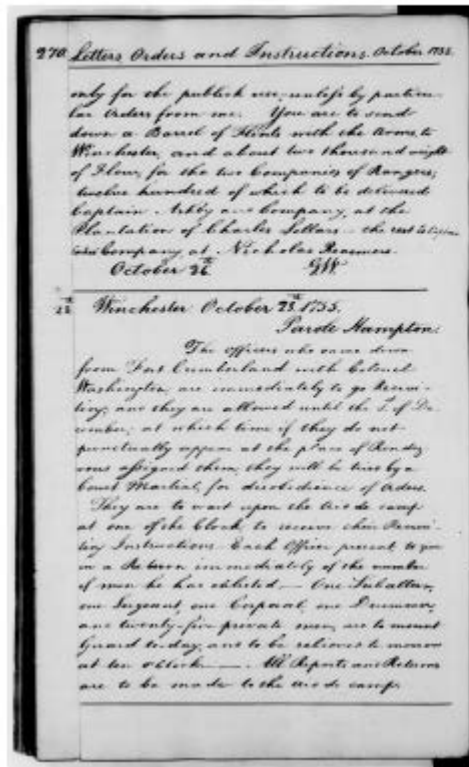 270 Letters Orders and Instructions. October 1755.
only for the publick use, unless by particu-
lar Orders from me. You are to send
down a Barrel of Flints with the Arms, to
Winchester, and about two thousand weight
of Flour, for the two Companies of Rangers;
twelve hundred of which to be delivered
Captain Ashby and Company, at the
Plantation of Charles Sellars – the rest to
Company, at Nicholas Reasmers.
October 26th GW
28th Winchester October 28th 1755.
Parole Hampton.
The Officers who came down
from Fort Cumberland with Colonel
Washington, are immediately to go Recrui-
ting; and they are allowed until the 1st of De-
cember; at which time if they do not
punctually appear at the place of Rendez-
vous assigned them, they will be tried by a
Court Martial, for disobedience of Orders.
They are to wait upon the Aid de camp
at one of the Clock, to receive their Recrui-
ting Instructions. Each Officer present to give
in a Return immediately of the number
of men he has enlisted. — One Subaltern,
one Sergeant, one Corporal, one Drummer,
and twenty-five private men, are to mount
Guard to-day, and to be relieved to-morrow
at ten o'Clock —. All Reports and Returns
are to be made to the Aid de camp.